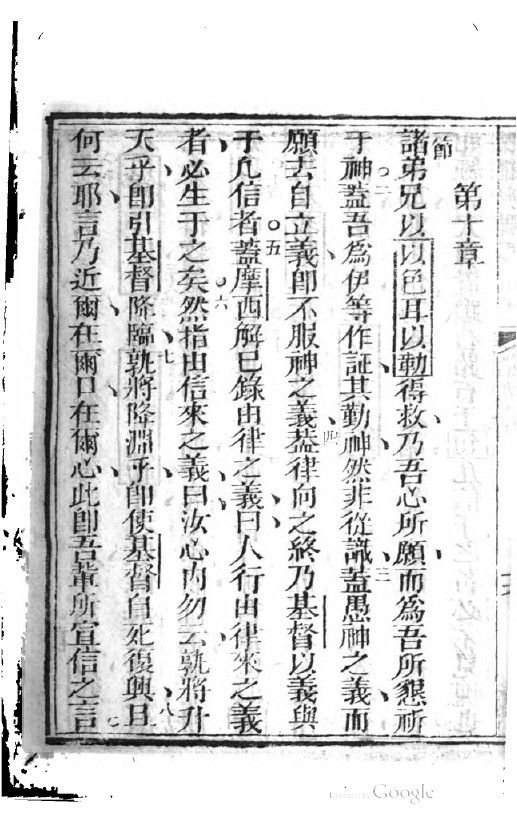 第十章
節
諸弟兄以以色耳以勤得救乃吾心所願而為吾所懇祈
二
于神蓋吾為伊等作証其勤神然非從識蓋愚神之義而
三
願去自立義即不服神之義蓋律向之終乃基督以義與
四
于凡信者蓋摩西解已錄由律之義曰人行由律來之義
五
者必生于之矣然指由信來之義曰汝心內勿云孰將升
六
天乎即引基督降臨孰將降淵乎即使基督自死復興且
七
何云耶言乃近爾在爾口在爾心此即吾輩所宣信之言
八
Digitized by Google